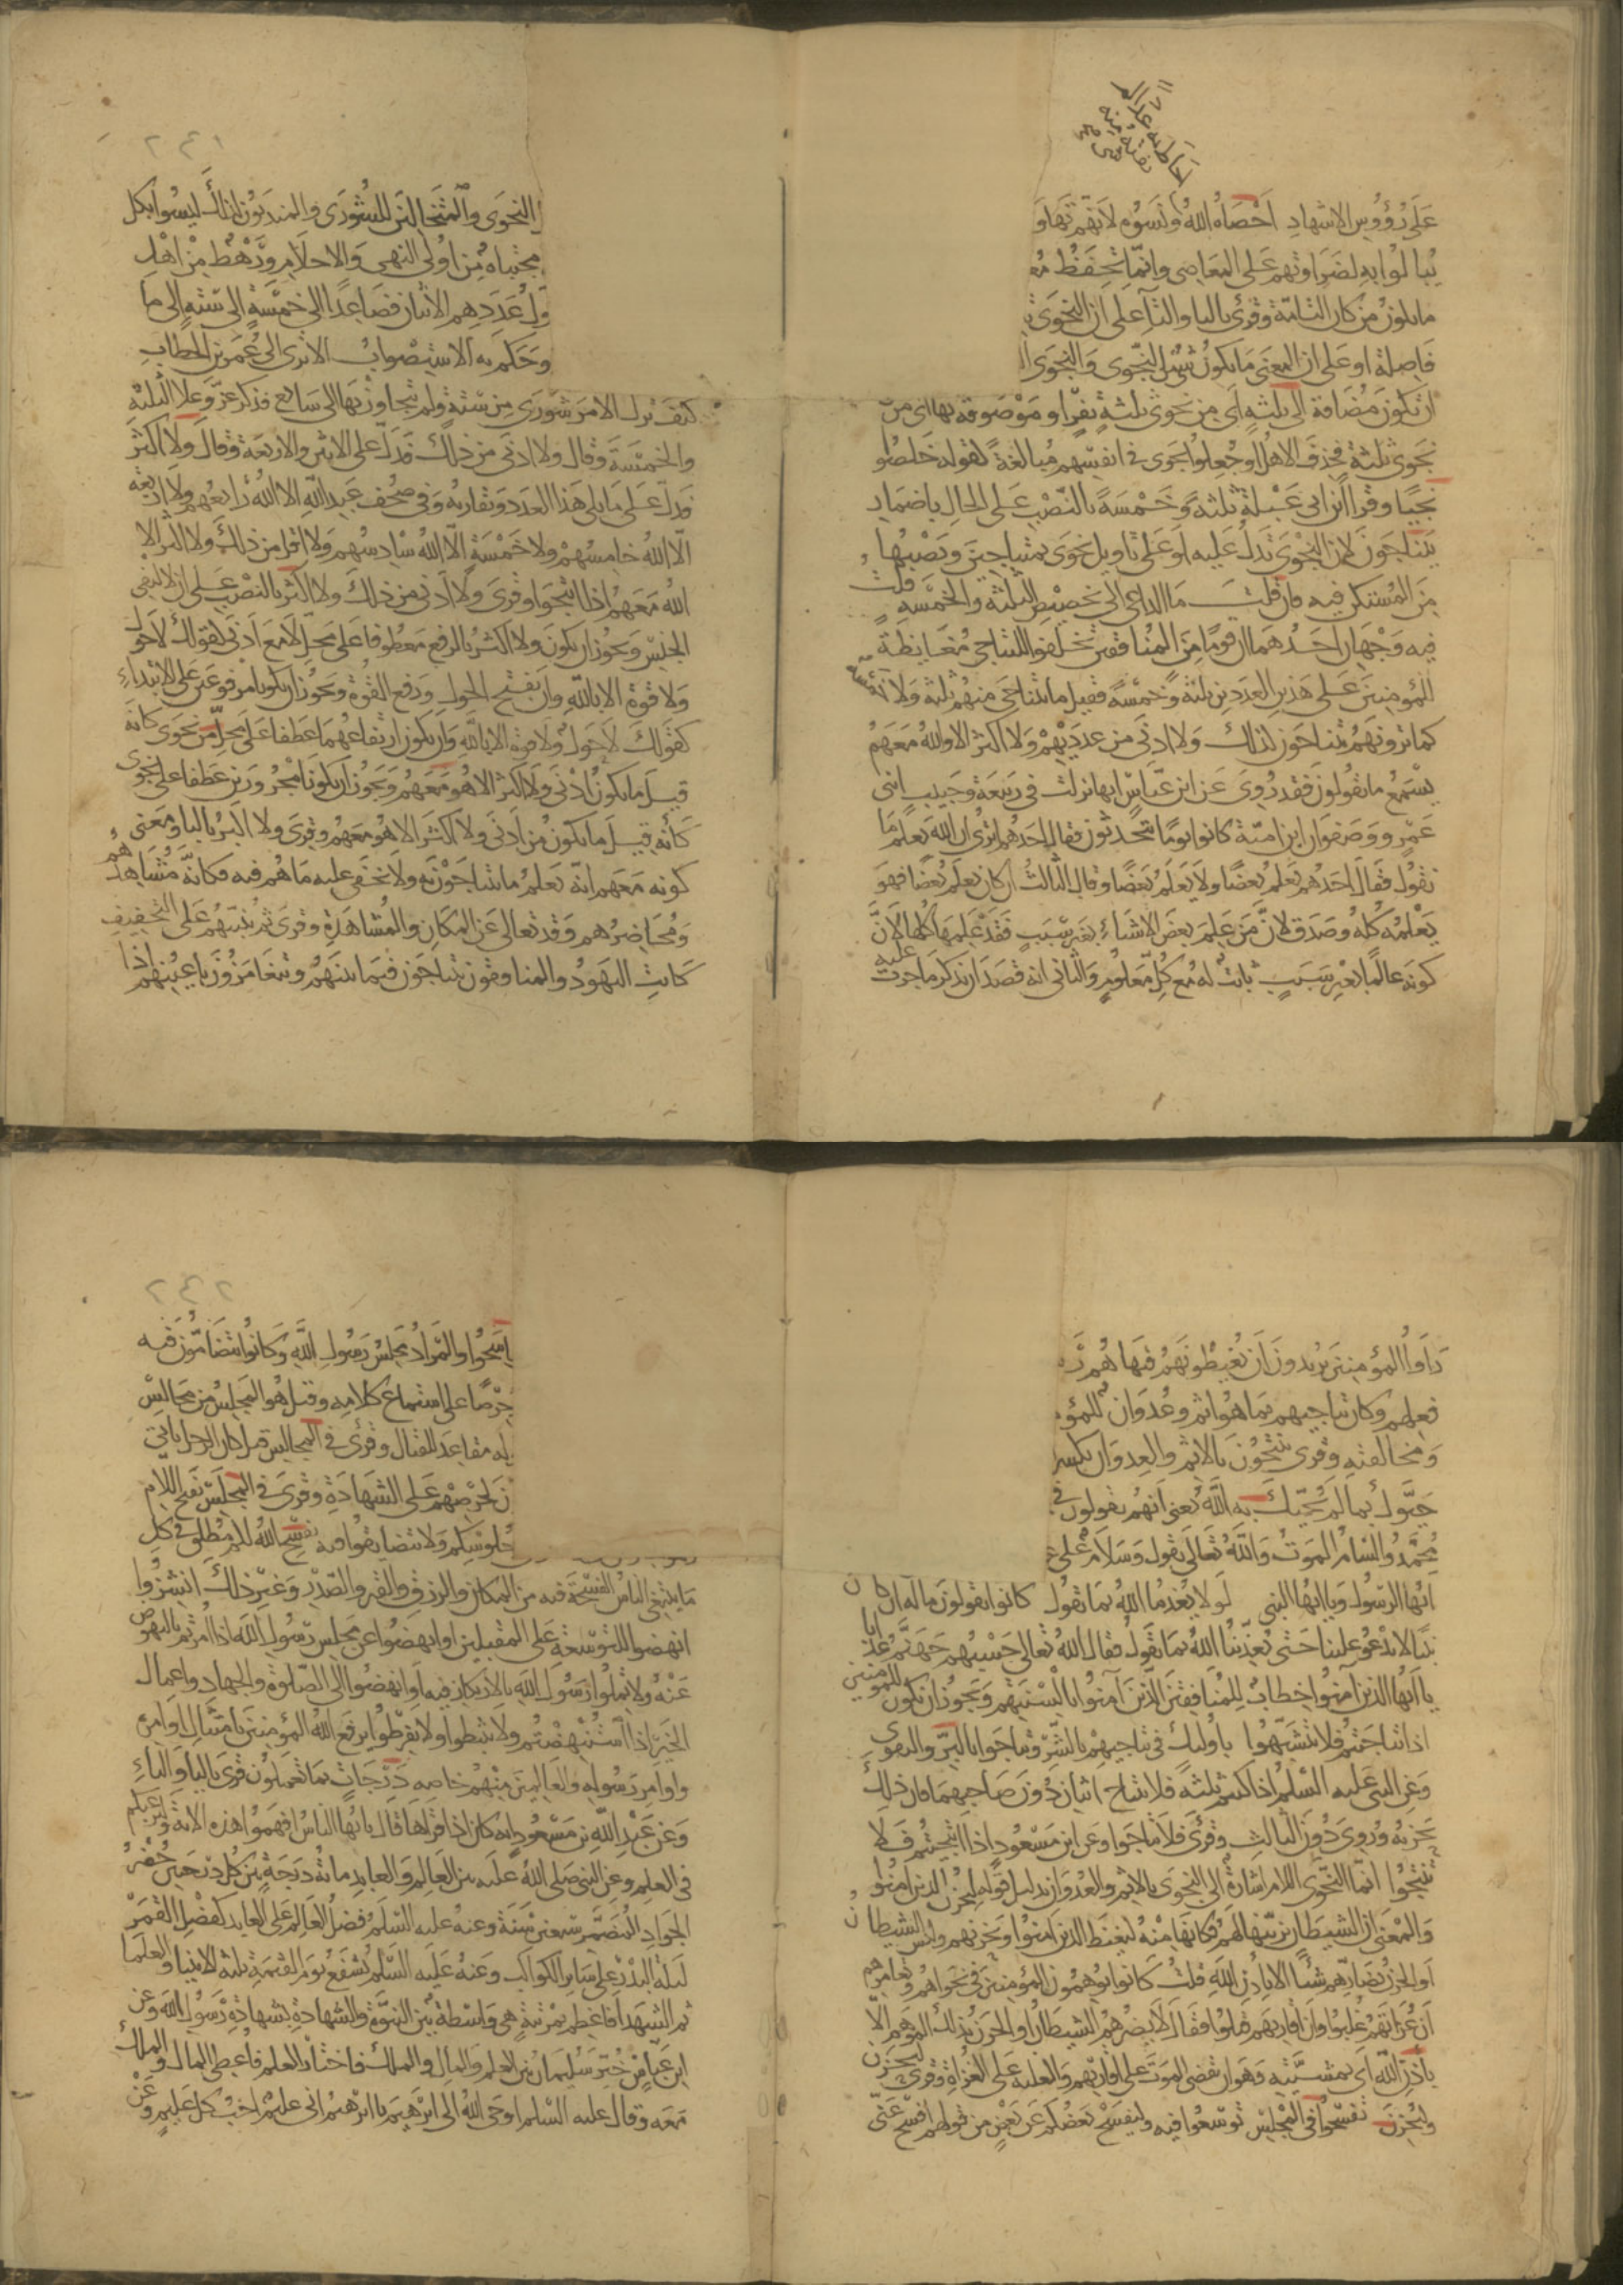 على رؤوس الاشهاد احصاه الله ونسوه لانهم تهاو
يبالوا به لضراوتهم على المعاصي وانما تحفظ مع
ما يكون من كان التامة وقرئ باليا والتا على ان النجوى
فاصلة او على ان المعنى ما يكون شئ من النجوى والنجوى ا
ان تكون مضافة الى ثلثة اي من نجوى ثلثة نفر او موصوفة بها اي من
نجوى ثلثة فحذف الاهل او جعلوا نجوى في انفسهم مبالغة كقوله خلصوا
نجيا وقرا ابن ابي عبلة ثلثة وخمسة بالنصب على الحال باضمار
يتناجون لان النجوى تدل عليه او على تاويل نجوى بمتناجين ونصبها
من المستكن فيه فان قلت ما الداعي الى تخصيص الثلثة والخمسة قلت
فيه وجهان احدهما ان قوما من المنافقين تحلقوا للتناجي مغايظة
للمؤمنين على هذين العددين ثلثة وخمسة فقيل ما يتناجى منهم ثلثة ولا خمسة
كما ترونهم يتناجون كذلك ولا ادنى من عدديهم ولا اكثر الا والله معهم
يسمع ما يقولون فقد روي عن ابن عباس انها نزلت في ربيعة وحبيب ابني
عمرو وصفوان ابن امية كانوا يوما يتحدثون فقال احدهم اترى ان الله يعلم ما
نقول فقال احدهم يعلم بعضا ولا يعلم بعضا وقال الثالث ان كان يعلم بعضا فهو
يعلمه كله وصدق لان من علم بعض الاشياء بغير سبب فقد علمها كلها لان
كونه عالما بغير سبب ثابت له مع كل معلوم والثاني انه قصد ان يذكر ما جرت عليه
٢٤١
النجوى والمتخالين للشورى والمندوبون لذلك ليسوا بكل
مجتباه من اولى النهى والاحلام ورهط من اهل
ول عددهم الاثنان فصاعدا الى خمسة الى ستة الى ما
وحكم به الاستصواب الا ترى الى عمر بن الخطاب
كيف ترك الامر شورى بين ستة ولم يتجاوز بها الى سابع فذكر عز وعلا الثلثة
والخمسة وقال ولا ادنى من ذلك فدل على الاثنين والاربعة وقال ولا اكثر
فدل على ما يلي هذا العدد ويقاربه وفي مصحف عبد الله الا الله رابعهم ولا اربعة
الا الله خامسهم ولا خمسة الا الله سادسهم ولا اقل من ذلك ولا اكثر الا
الله معهم اذا انتجوا وقرئ ولا ادنى من ذلك ولا اكثر بالنصب على ان لا لنفي
الجنس ويجوز ان يكون ولا اكثر بالرفع معطوفا على محل لا مع ادنى كقولك لا حول
ولا قوة الا بالله وان بفتح الحول ورفع القوة ويجوز ان يكونا مرفوعين على الابتداء
كقولك لا حول ولا قوة الا بالله وان يكون ارتفاعهما عطفا على محل من نجوى كانه
قيل ما يكون ادنى ولا اكثر الا هو معهم ويجوز ان يكونا مجرورين عطفا على نجوى
كأنه قيل ما يكون من ادنى ولا اكثر الا هو معهم وقرئ ولا اكبر باليا ومعنى
كونه معهم انه يعلم ما يتناجون به ولا يخفى عليه ما هم فيه فكانه مشاهدهم
ومحاضرهم وقد تعالى عن المكان والمشاهدة وقرئ ثم ينبئهم على التخفيف
كانت اليهود والمنافقون يتناجون فيما بينهم ويتغامزون باعينهم اذا
راوا المؤمنين يريدون ان يغيظوهم فنهاهم ر
فعلهم وكان تناجيهم بما هو اثم وعدوان للمؤ
ومخالفته وقرئ ينتجون بالاثم والعدوان بكسر
حيوك بما لم يحيك به الله يعني انهم يقولون في
محمد والسام الموت والله تعالى يقول وسلام على
ايها الرسول ويا ايها النبي لولا يعذبنا الله بما نقول كانوا يقولون ماله ان كان
نبيا لا يدعو علينا حتى يعذبنا الله بما نقول فقال الله تعالى حسبهم جهنم عذابا
يا ايها الذين آمنوا خطاب للمنافقين الذين آمنوا بالسنتهم ويجوز ان يكون للمؤمنين
اذا تناجيتم فلا تتشبهوا باولئك في تناجيهم بالشر وتناجوا بالبر والتقوى
وعن النبي عليه السلم اذا كنتم ثلثة فلا يتناج اثنان دون صاحبهما فان ذلك
يحزنه وروي دون الثالث وقرئ فلا تناجوا وعن ابن مسعود اذا انتجيتم فلا
تنتجوا انما النجوى اللام اشارة الى النجوى بالاثم والعدوان بدليل قوله ليحزن الذين امنوا
والمعنى ان الشيطان يزينها لهم فكانها منه ليغيظ الذين امنوا ويحزنهم وليس الشيطان
او الحزن بضارهم شيئا الا باذن الله قلت كانوا يوهمون المؤمنين في نجواهم وتغامزهم
ان غزاتهم غلبوا وان اقاربهم قتلوا فقال لا يضرهم الشيطان او الحزن بذلك الموهم الا
باذن الله اي بمشيته وهو ان يقضى الموت على اقاربهم والغلبة على الغزاة وقرئ ليحزن
وليحزن تفسحوا في المجلس توسعوا فيه وليفسح بعضكم عن بعض من قولهم افسح عني
٢٤٢
تفاسحوا والمراد مجلس رسول الله وكانوا يتضامون فيه
حرصا على استماع كلامه وقيل هو المجلس من مجالس
له مقاعد للقتال وقرئ في المجالس قيل كان الرجل ياتي
ن لحرصهم على الشهادة وقرئ في المجلس بفتح اللام
جلوسكم ولا تتضايقوا فيه يفسح الله لكم مطلق في كل
ما يبتغي الناس الفسحة فيه من المكان والرزق والقبر والصدر وغير ذلك انشزوا
انهضوا للتوسعة على المقبلين او انهضوا عن مجلس رسول الله اذا امرتم بالنهوض
عنه ولا تملوا رسول الله بالارتكاز فيه او انهضوا الى الصلوة والجهاد واعمال
الخير اذا استنهضتم ولا تثبطوا ولا تفرطوا يرفع الله المؤمنين بامتثال اوامره
واوامر رسوله والعالمين منهم خاصه درجات بما تعملون قرئ باليا والتاء
وعن عبد الله بن مسعود انه كان اذا قراها قال يا ايها الناس افهموا هذه الاية ولترغبكم
في العلم وعن النبي صلى الله عليه بين العالم والعابد مائة درجة بين كل درجتين حضر
الجواد المضمر سبعين سنة وعنه عليه السلم فضل العالم على العابد كفضل القمر
ليلة البدر على سائر الكواكب وعنه عليه السلم يشفع يوم القيمة ثلثة الانبيا والعلما
ثم الشهدا فاعظم بمرتبة هي واسطة بين النبوة والشهادة بشهادة رسول الله وعن
ابن عباس خير سليمان بين العلم والمال والملك فاختار العلم فاعطي المال والملك
معه وقال عليه السلم اوحى الله الى ابرهيم يا ابرهيم اني عليم احب كل عليم وعن